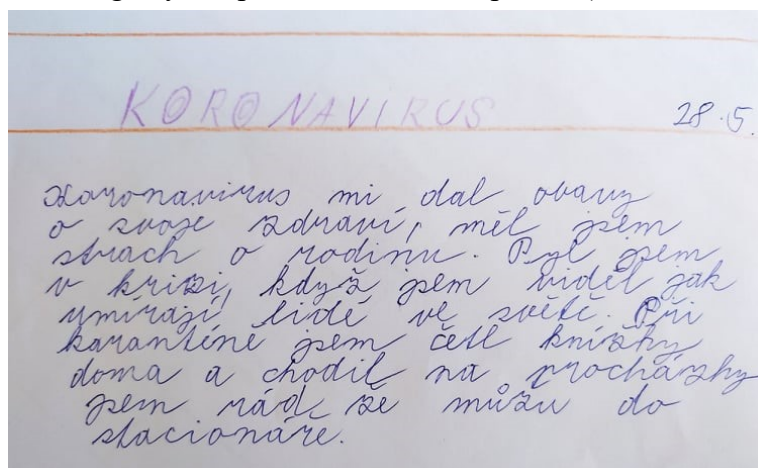 KORONAVIRUS 28.5.
Koronavirus mi dal obavy
o svoje zdraví, měl jsem
strach o rodinu. Pyl jsem
v krizi, když jsem viděl jak
umírají lidé ve světě. Při
karanténě jsem četl knížky
doma a chodil na procházky
jsem rád že můžu do
stacionáře.